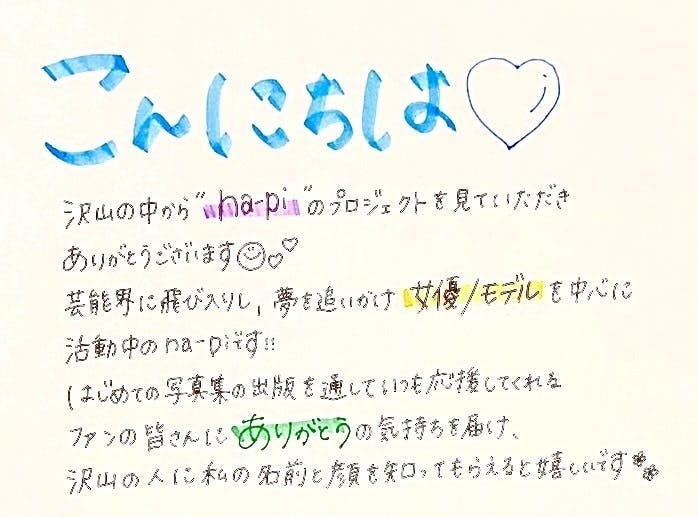 こんにちは♡
沢山の中から"na-pi"のプロジェクトを見ていただき
ありがとうございます☺♡♡
芸能界に飛び入りし、夢を追いかけ 女優/モデルを中心に
活動中のna-piです!!
はじめての写真集の出版を通していつも応援してくれる
ファンの皆さんにありがとうの気持ちを届け、
沢山の人に私の名前と顔を知ってもらえると嬉しいです